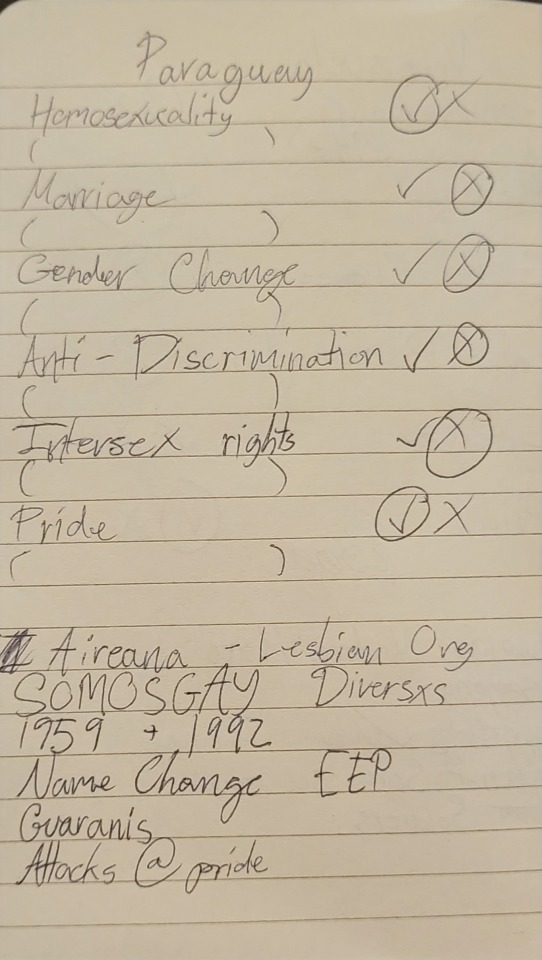 Paraguay
Homosexuality ✓ X
( )
Marriage ✓ X
( )
Gender Change ✓ X
( )
Anti - Discrimination ✓ X
( )
Intersex rights ✓ X
( )
Pride ✓ X
( )
Aireana - Lesbian Org
SOMOSGAY Diversxs
1959 + 1992
Name Change EEP
Guaranis
Attacks @ pride